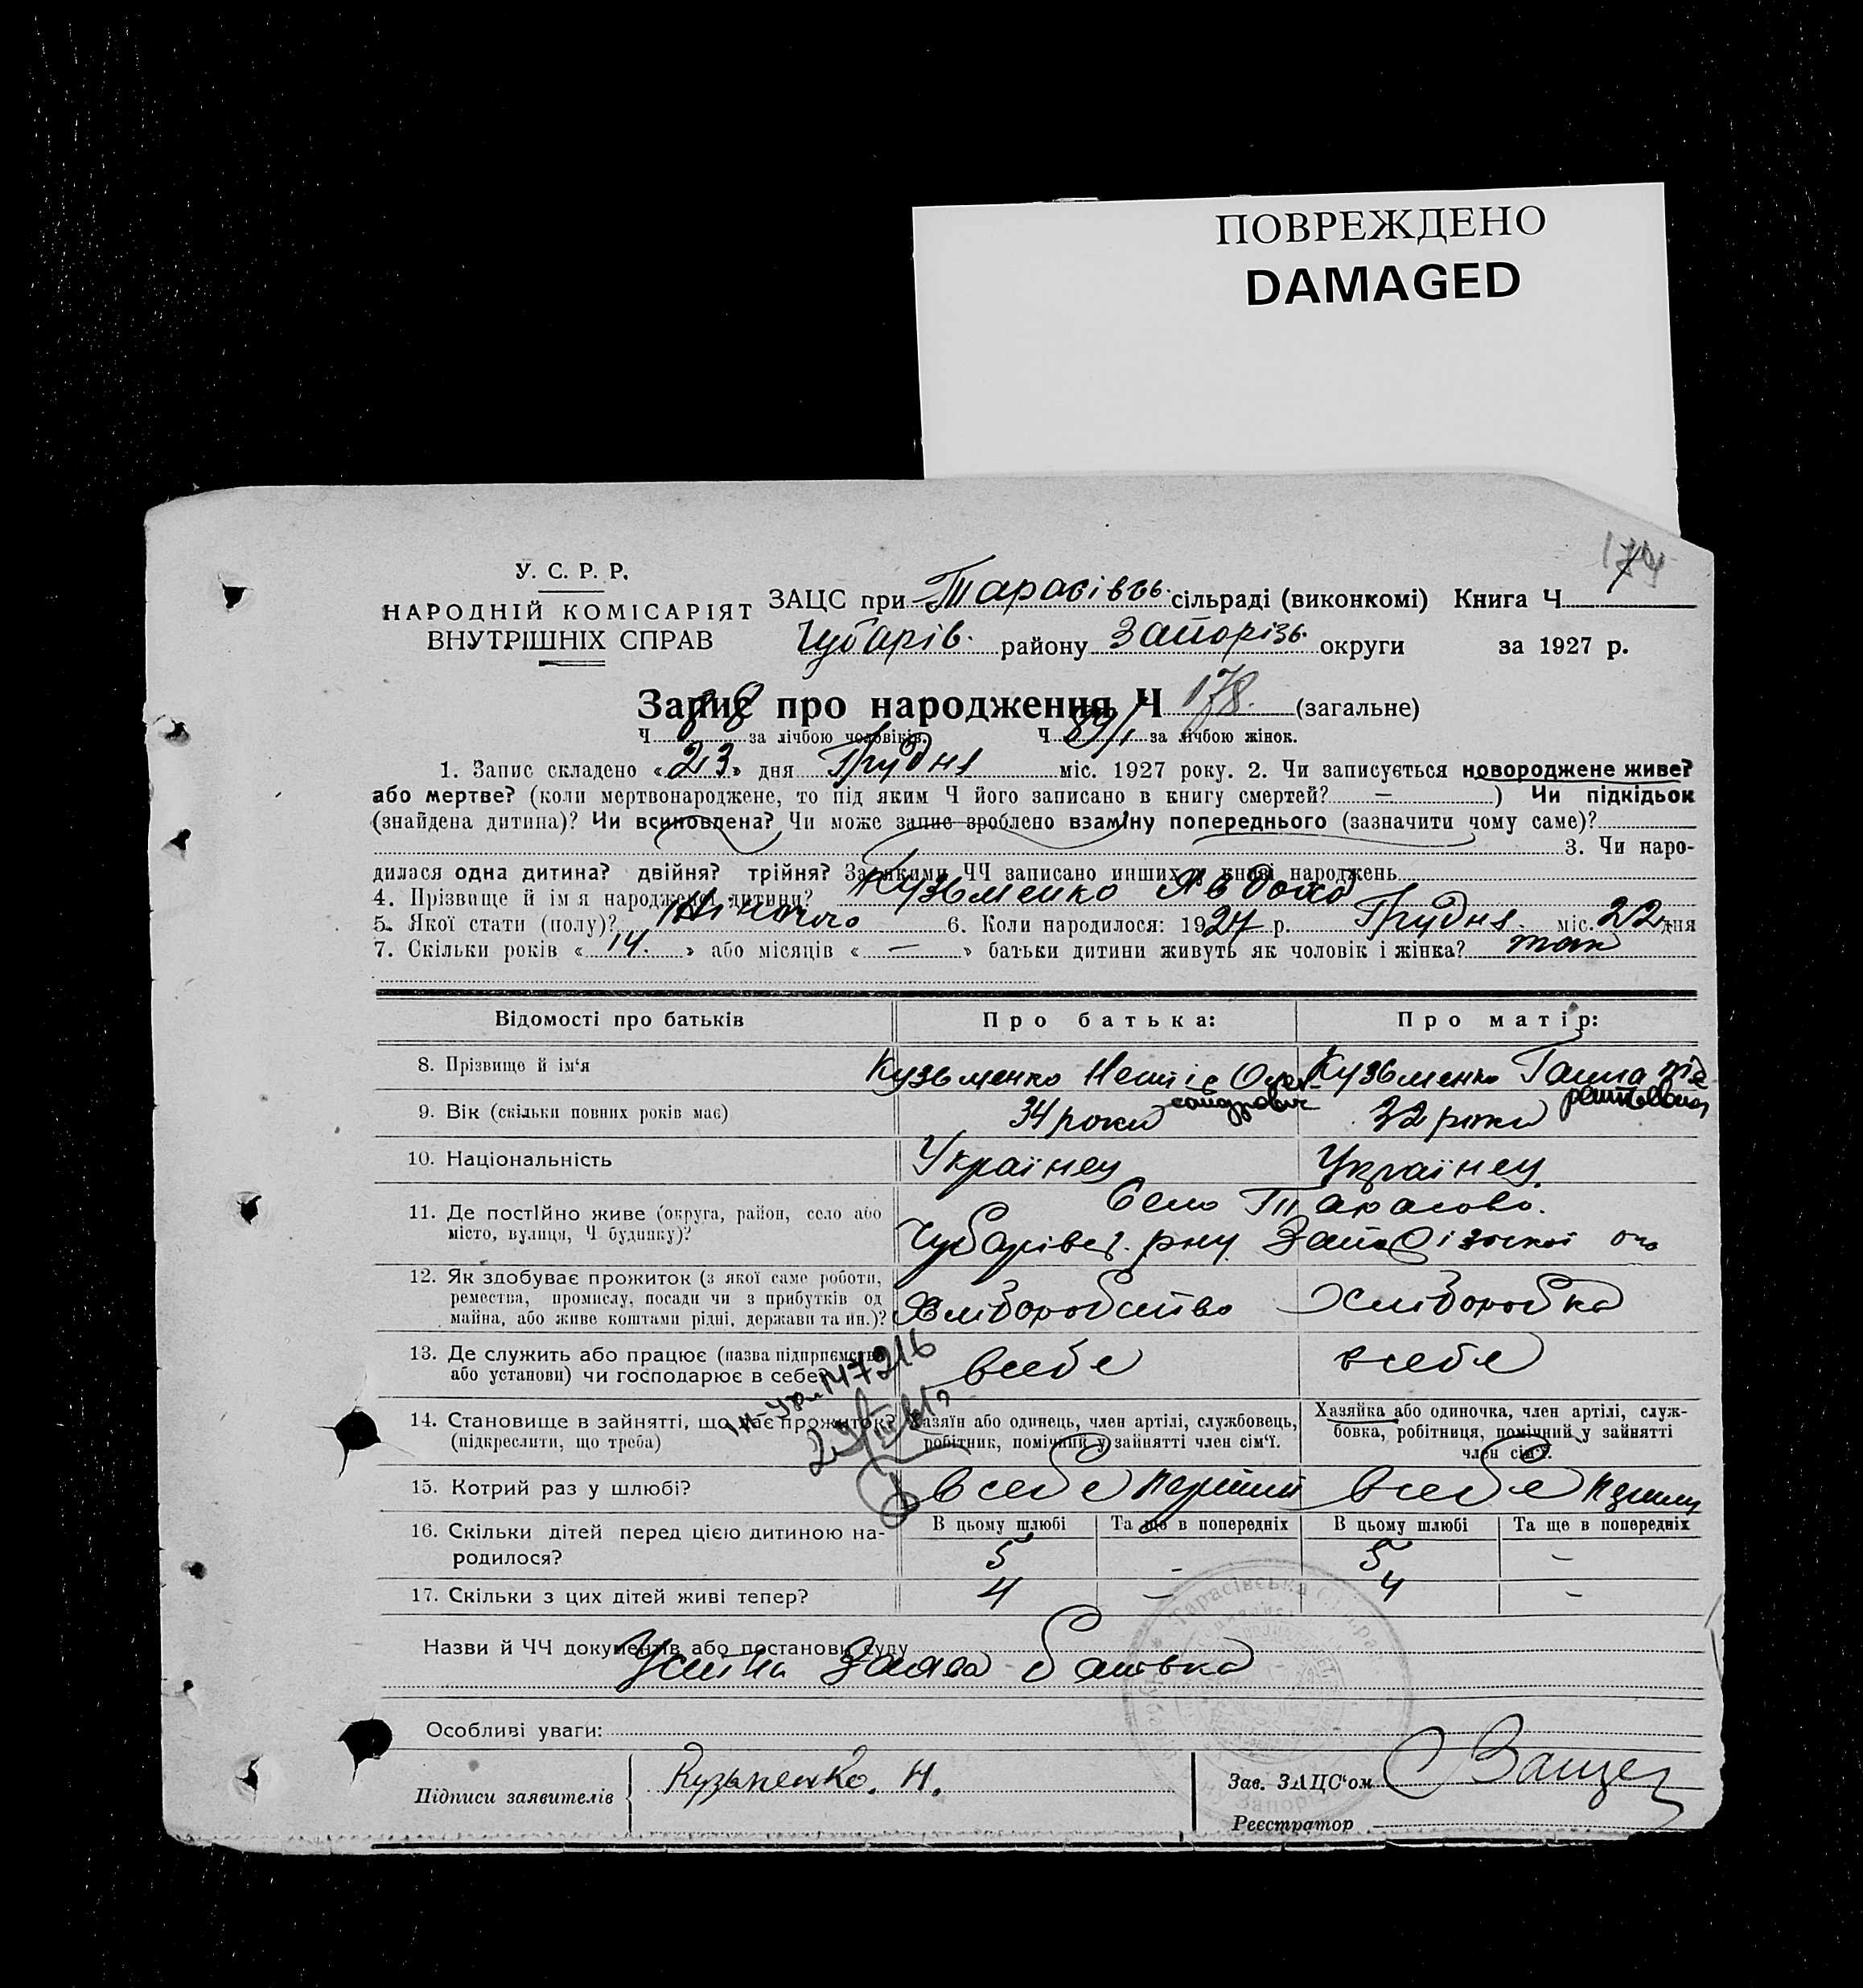 ПОВРЕЖДЕНО
DAMAGED
У. С. Р. Р.
НАРОДНІЙ КОМІСАРІЯТ
ВНУТРІШНІХ СПРАВ
ЗАЦС при Тарасівсь. сільраді (виконкомі) Книга Ч
Чубарів. району Запорізь. округи за 1927 р.
Запис про народження Ч 178. (загальне)
Ч 88 за лічбою чоловіків. Ч за лічбою жінок.
1. Запис складено « 23 » дня Грудня міс. 1927 року. 2. Чи записується новороджене живе?
або мертве? (коли мертвонароджене, то під яким Ч його записано в книгу смертей? — ) Чи підкідьок
(знайдена дитина)? Чи всиновлена? Чи може запис зроблено взаміну попереднього (зазначити чому саме)?
3. Чи наро-
дилася одна дитина? двійня? трійня? За якими ЧЧ записано инших у книзі народжень
4. Прізвище й ім'я народженої дитини? Кузьменко Явдоха
5. Якої стати (полу)? Жіночого 6. Коли народилося: 1927 р. Грудня міс. 22 дня
7. Скільки років « 14. » або місяців « — » батьки дитини живуть як чоловік і жінка? так
Відомості про батьків Про батька: Про матір:
8. Прізвище й ім'я Кузьменко Олек- Кузьменко Ганна
сандрович
9. Вік (скільки повних років має) 34 роки 32 роки
10. Національність Українец Українец
11. Де постійно живе (округа, район, село або Село Тарасовк.
місто, вулиця, Ч будинку)? Чубарівс. р-ну Запорізької окр
12. Як здобуває прожиток (з якої саме роботи,
ремества, промислу, посади чи з прибутків од Хліборобство Хліборобка
майна, або живе коштами рідні, держави та ин.)?
13. Де служить або працює (назва підприємства
або установи) чи господарює в себе? всебе всебе
14. Становище в зайнятті, що дає прожиток? Хазяїн або одинець, член артілі, службовець, Хазяйка або одиночка, член артілі, служ-
(підкреслити, що треба) робітник, помічний у зайнятті член сім'ї. бовка, робітниця, помічний у зайнятті
член сім'ї.
15. Котрий раз у шлюбі? всебе перший всебе
16. Скільки дітей перед цією дитиною на- В цьому шлюбі Та ще в попередніх В цьому шлюбі Та ще в попередніх
родилося? 5 - 5 -
17. Скільки з цих дітей живі тепер? 4 - 4 -
Назви й ЧЧ документів або постанови суду
Устна Заява батька
Особливі уваги:
Підписи заявителів Кузьменко. Н. Зав. ЗАЦС'ом
Реєстратор